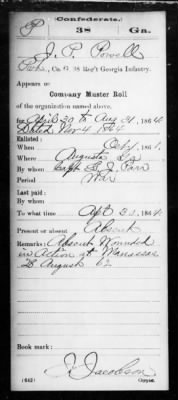 Confederate.
P 38 Ga.
J. P. Powell
Co. G. 38 Reg't Georgia Infantry.
Appears on
Company Muster Roll
of the organization named above,
for April 30 to Aug 31, 1864.
Dated Nov 4 1864
Enlisted:
When Oct 1, 1861.
Where Augusta Ga
By whom Capt G. J. Parr
Period War
Last paid:
By whom
To what time Apl 30, 1864.
Present or absent Absent
Remarks: Absent Wounded
in Action at Manassas
28 August 62
Book mark:
J. Jacobson
(642) Copyist.